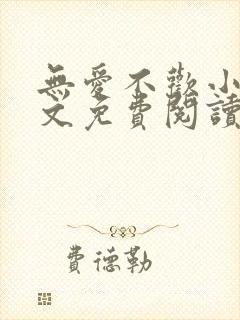 無愛不歡小
文免費閱讀
費德勒